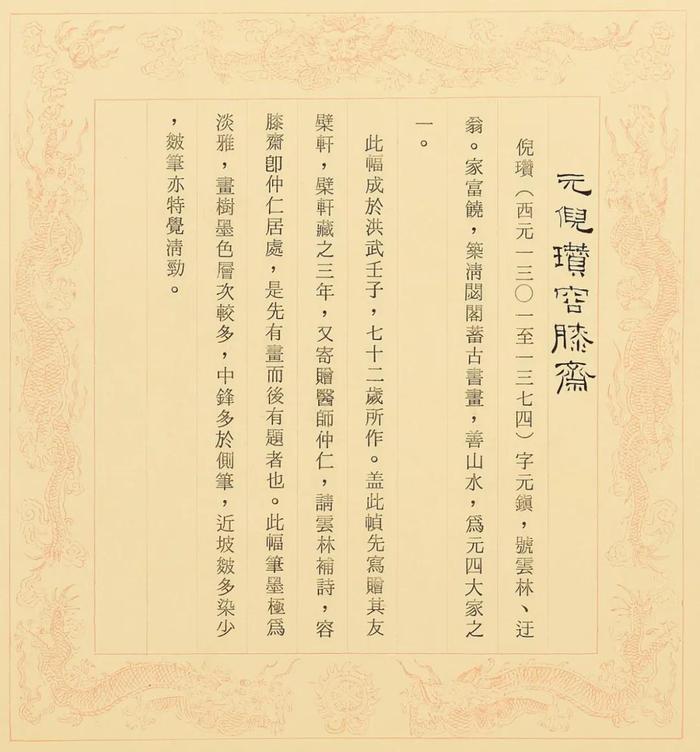 元倪瓚容膝齋
倪瓚（西元一三〇一至一三七四）字元鎮，號雲林、迂
翁。家富饒，築清閟閣蓄古書畫，善山水，爲元四大家之
一。
此幅成於洪武壬子，七十二歲所作。盖此幀先寫贈其友
檗軒，檗軒藏之三年，又寄贈醫師仲仁，請雲林補詩，容
膝齋卽仲仁居處，是先有畫而後有題者也。此幅筆墨極爲
淡雅，畫樹墨色層次較多，中鋒多於側筆，近坡皴多染少
，皴筆亦特覺清勁。